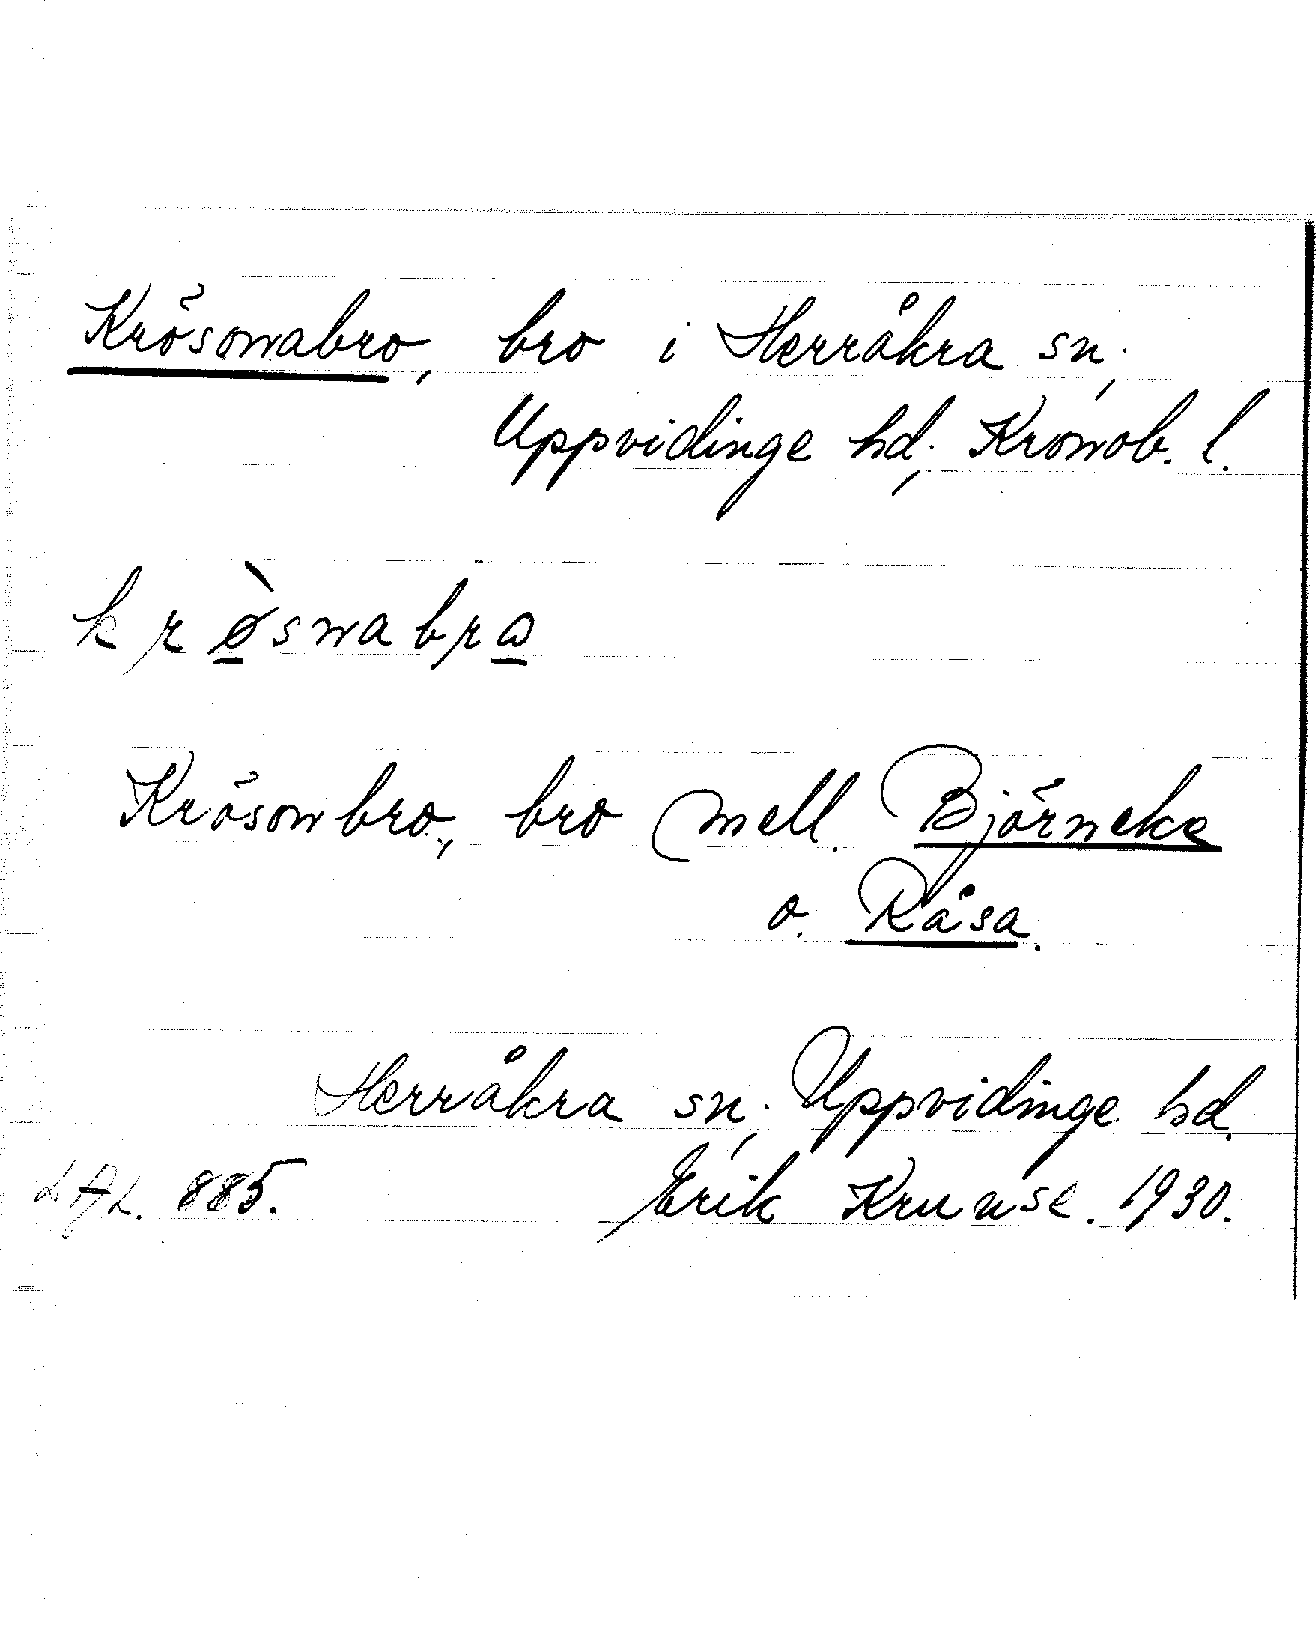 Krösonabro, bro i Herråkra sn,
Uppvidinge hd, Kronob. l.
krø̀snabrω
Krösonbro, bro mell. Björneke
o. Råsa.
Herråkra sn, Uppvidinge hd.
LAL. 885. Erik Kruuse. 1930.